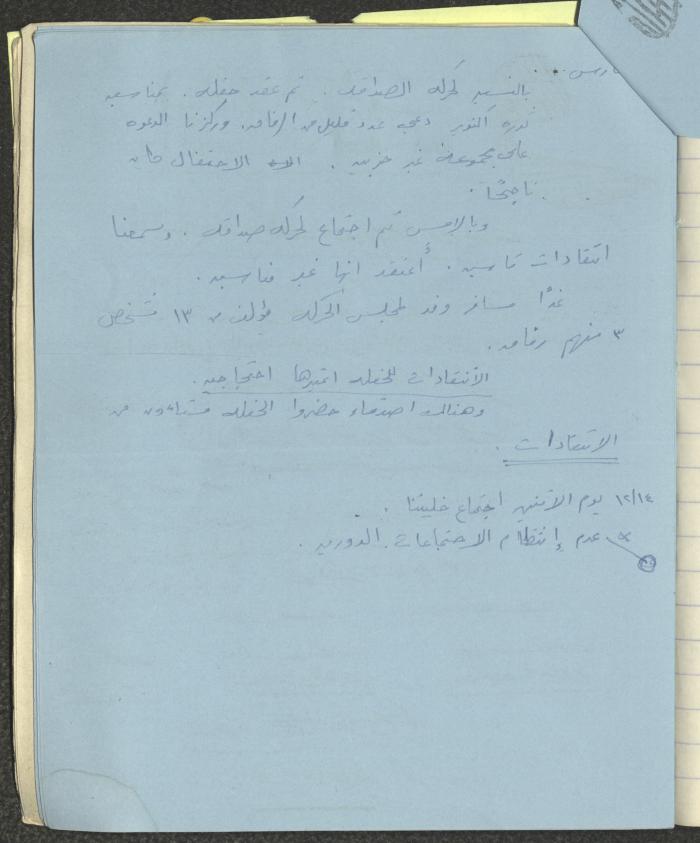 بالنسبه لحركه الصداقه . تم عقد حفله . بمناسبه
ثورة اكتوبر دعي عدد قليل من الرفاق. وركزنا الدعوه
على مجموعة غير حزبيه . الاحتفال كان
ناجحًا .
وبالامس تم اجتماع لحركه صداقه . وسمعنا
انتقادات قاسيه . أعتقد انها غير مناسبه .
غدًا مسافر وفد لمجلس الحركه مؤلف من ١٣ شخص
٣ منهم رفاق .
الانتقادات للحفله اعتبرها احتجاجيه .
وهنالك اصدقاء حضروا الحفله مستاءون من
الانتقادات .
١٢/١٤ يوم الاثنين اجتماع خليتنا .
عدم إنتظام الاجتماعات الدوريه .